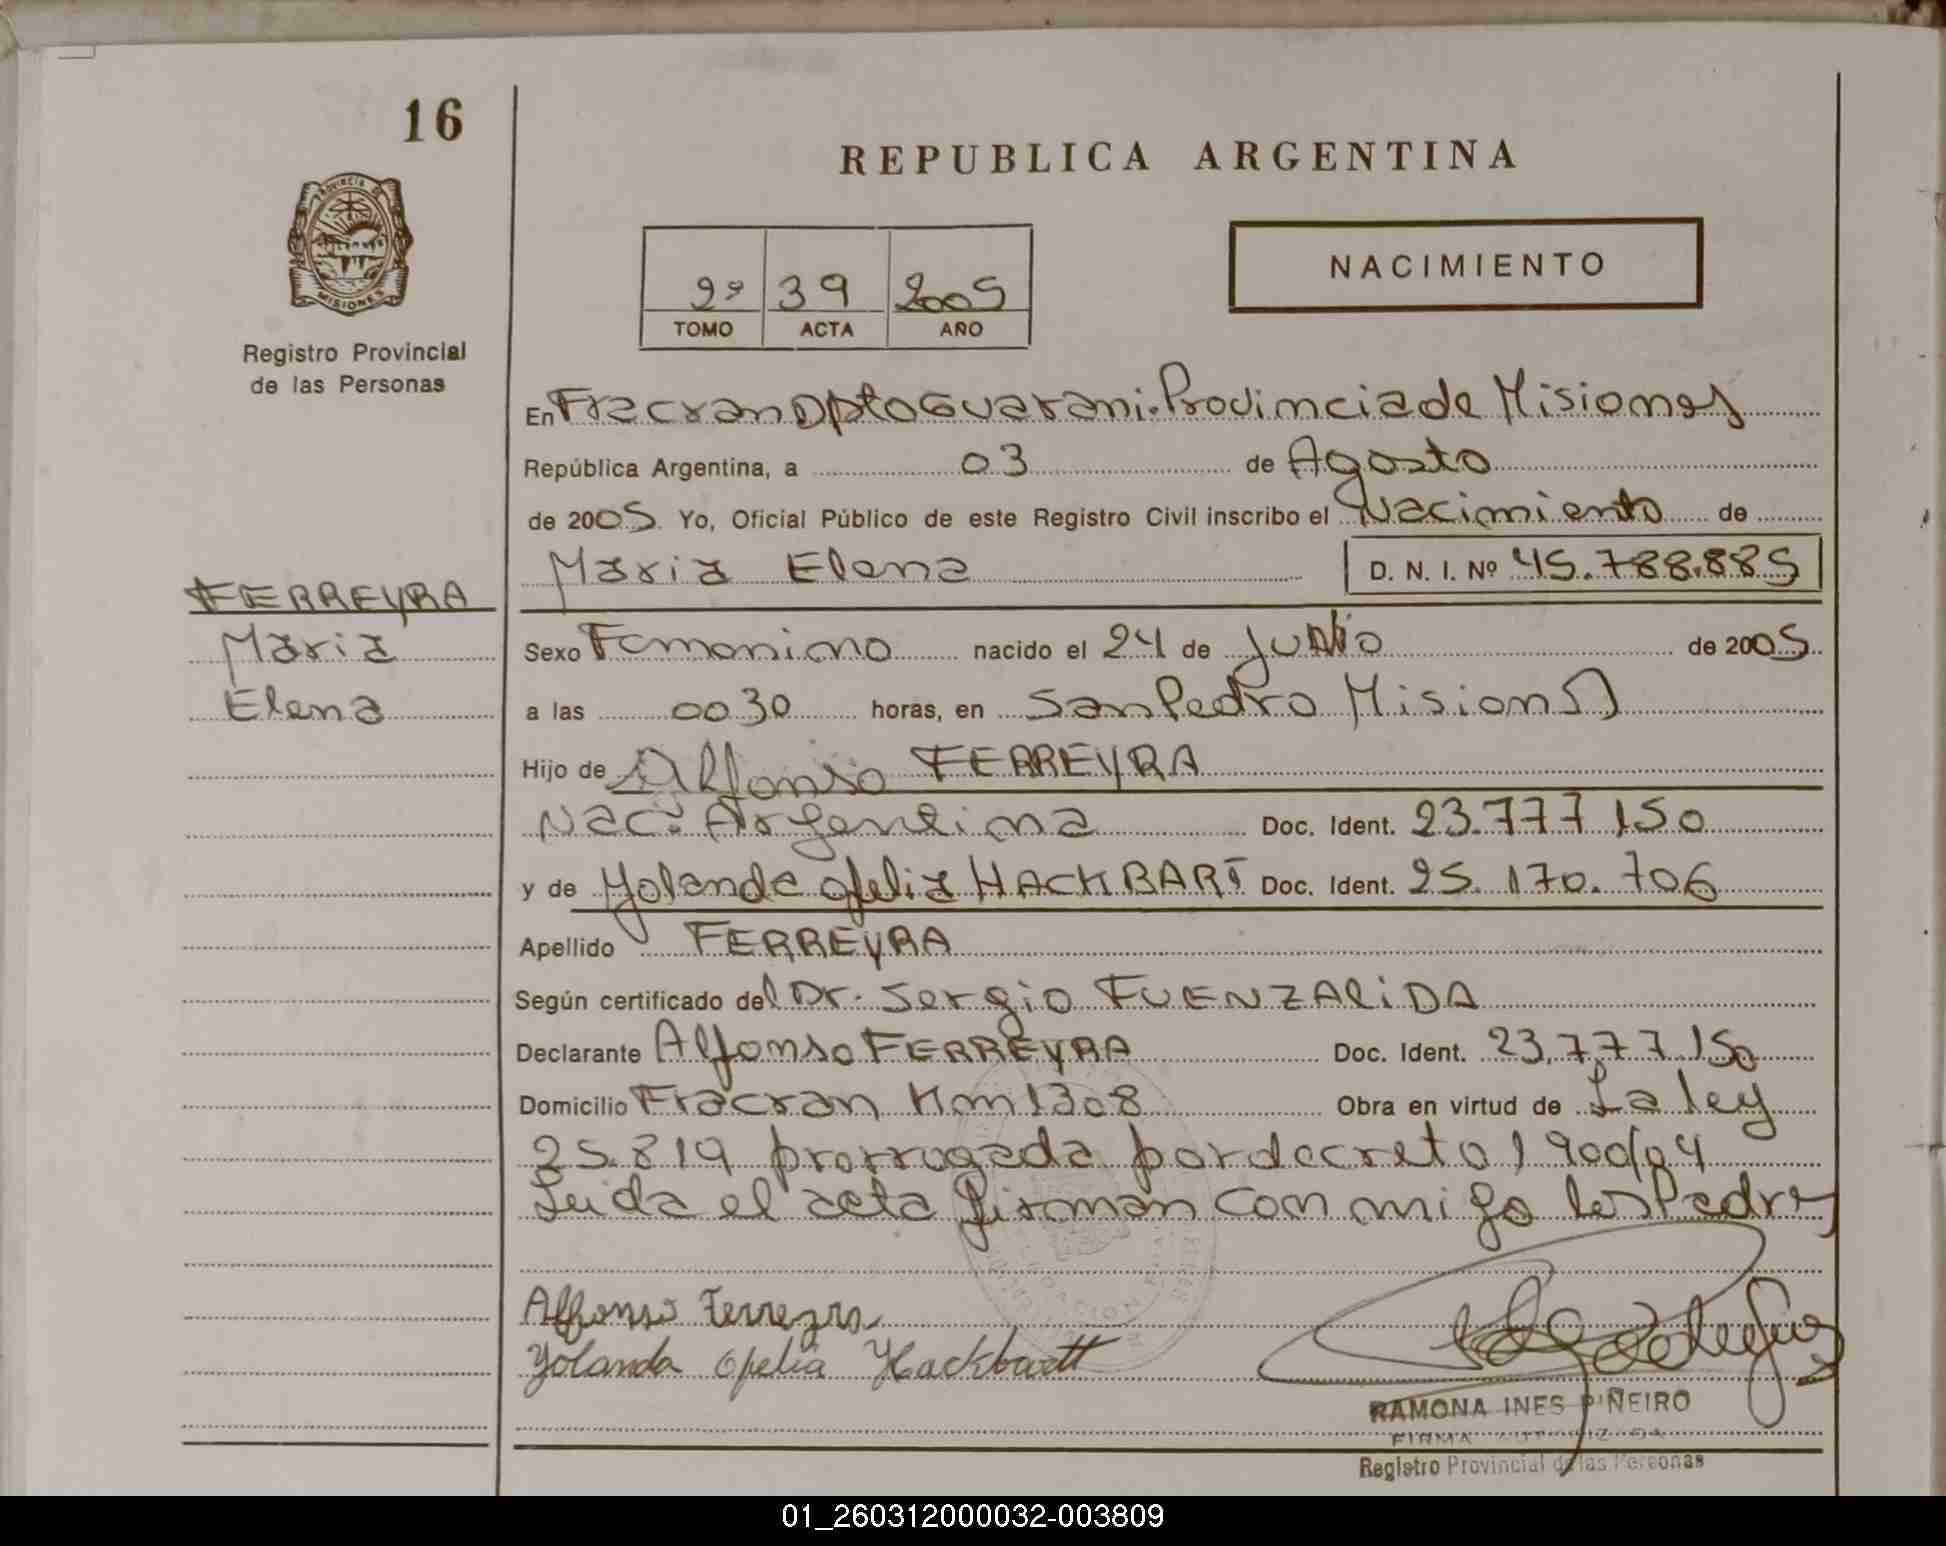 16
REPUBLICA ARGENTINA
PROVINCIA DE
MISIONES
Registro Provincial
de las Personas
NACIMIENTO
2º 39 2005
TOMO ACTA AÑO
En Fracran Dpto Guarani. Provincia de Misiones
República Argentina, a 03 de Agosto
de 2005. Yo, Oficial Público de este Registro Civil inscribo el Nacimiento de
Maria Elena D. N. I. Nº 45.788.885
FERREYRA
Maria
Elena
Sexo Femenino nacido el 24 de Junio de 2005
a las 0030 horas, en San Pedro Misiones
Hijo de Alfonso FERREYRA
Nac. Argentina Doc. Ident. 23.777.150
y de Yolanda Ofelia HACKBART Doc. Ident. 25.170.706
Apellido FERREYRA
Según certificado del Dr. Sergio FUENZALiDA
Declarante Alfonso FERREYRA Doc. Ident. 23.777.150
Domicilio Fracran Km 1308 Obra en virtud de La ley
25.819 prorrogada por decreto 1900/04
Leida el acta firman conmigo los Padres
Alfonso Ferreyra
Yolanda Ofelia Hackbartt
RAMONA INES PIÑEIRO
FIRMA AUTORIZADA
Registro Provincial de las Personas
01_260312000032-003809